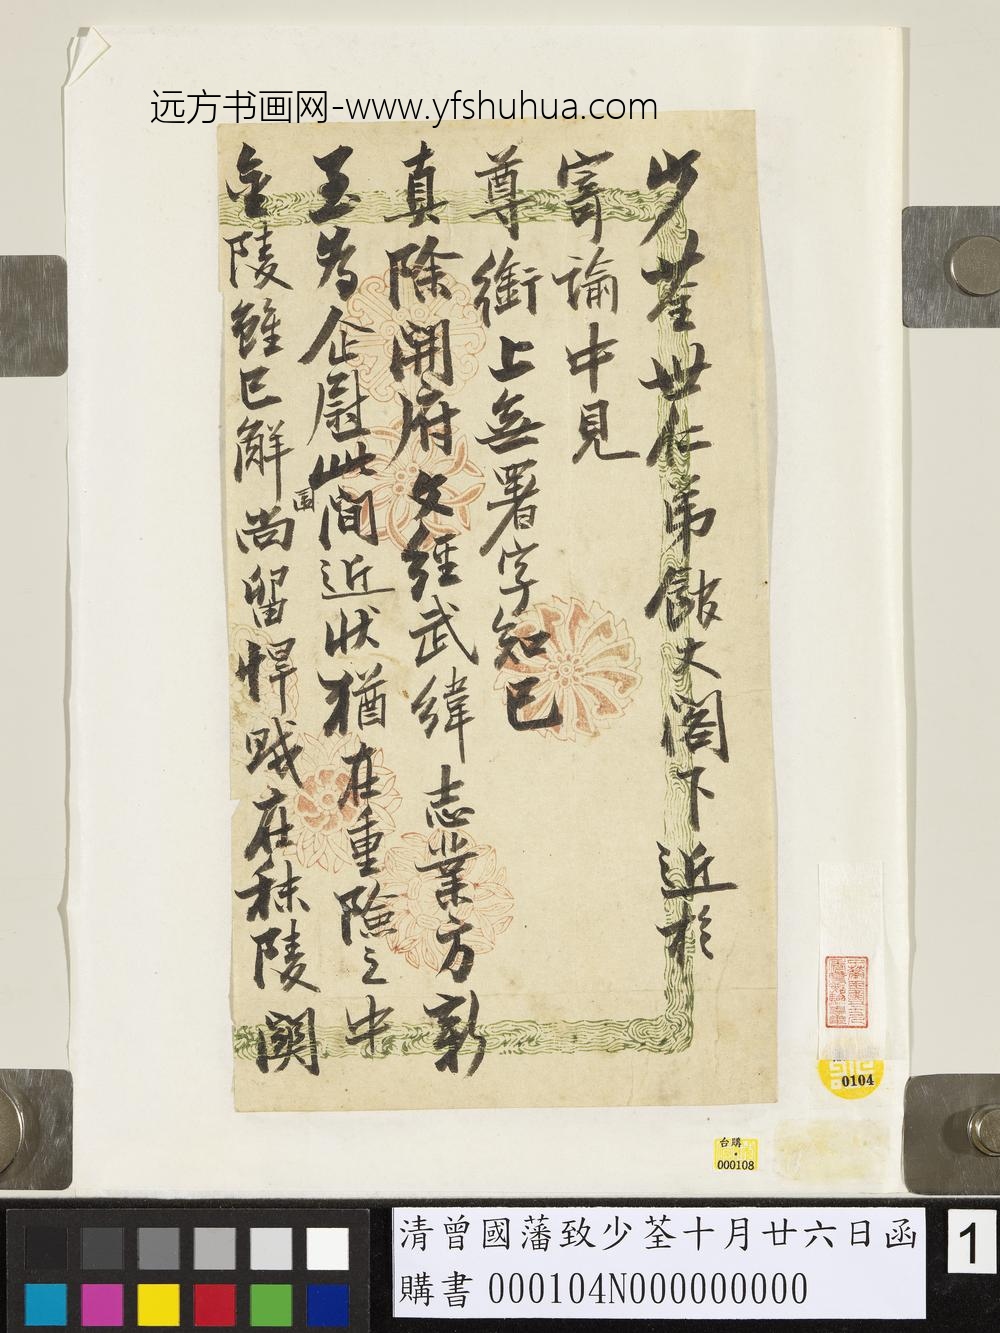 远方书画网-www.yfshuhua.com
少荃世仁弟館大閣下近於
寄諭中見
尊銜上無署字知已
真除開府文經武緯志業方新
至為企慰此間近狀猶在重險之中
金陵雖已解圍尚留悍賊在秣陵關
0104
台購
000108
清曾國藩致少荃十月廿六日函
購書 000104N000000000
1